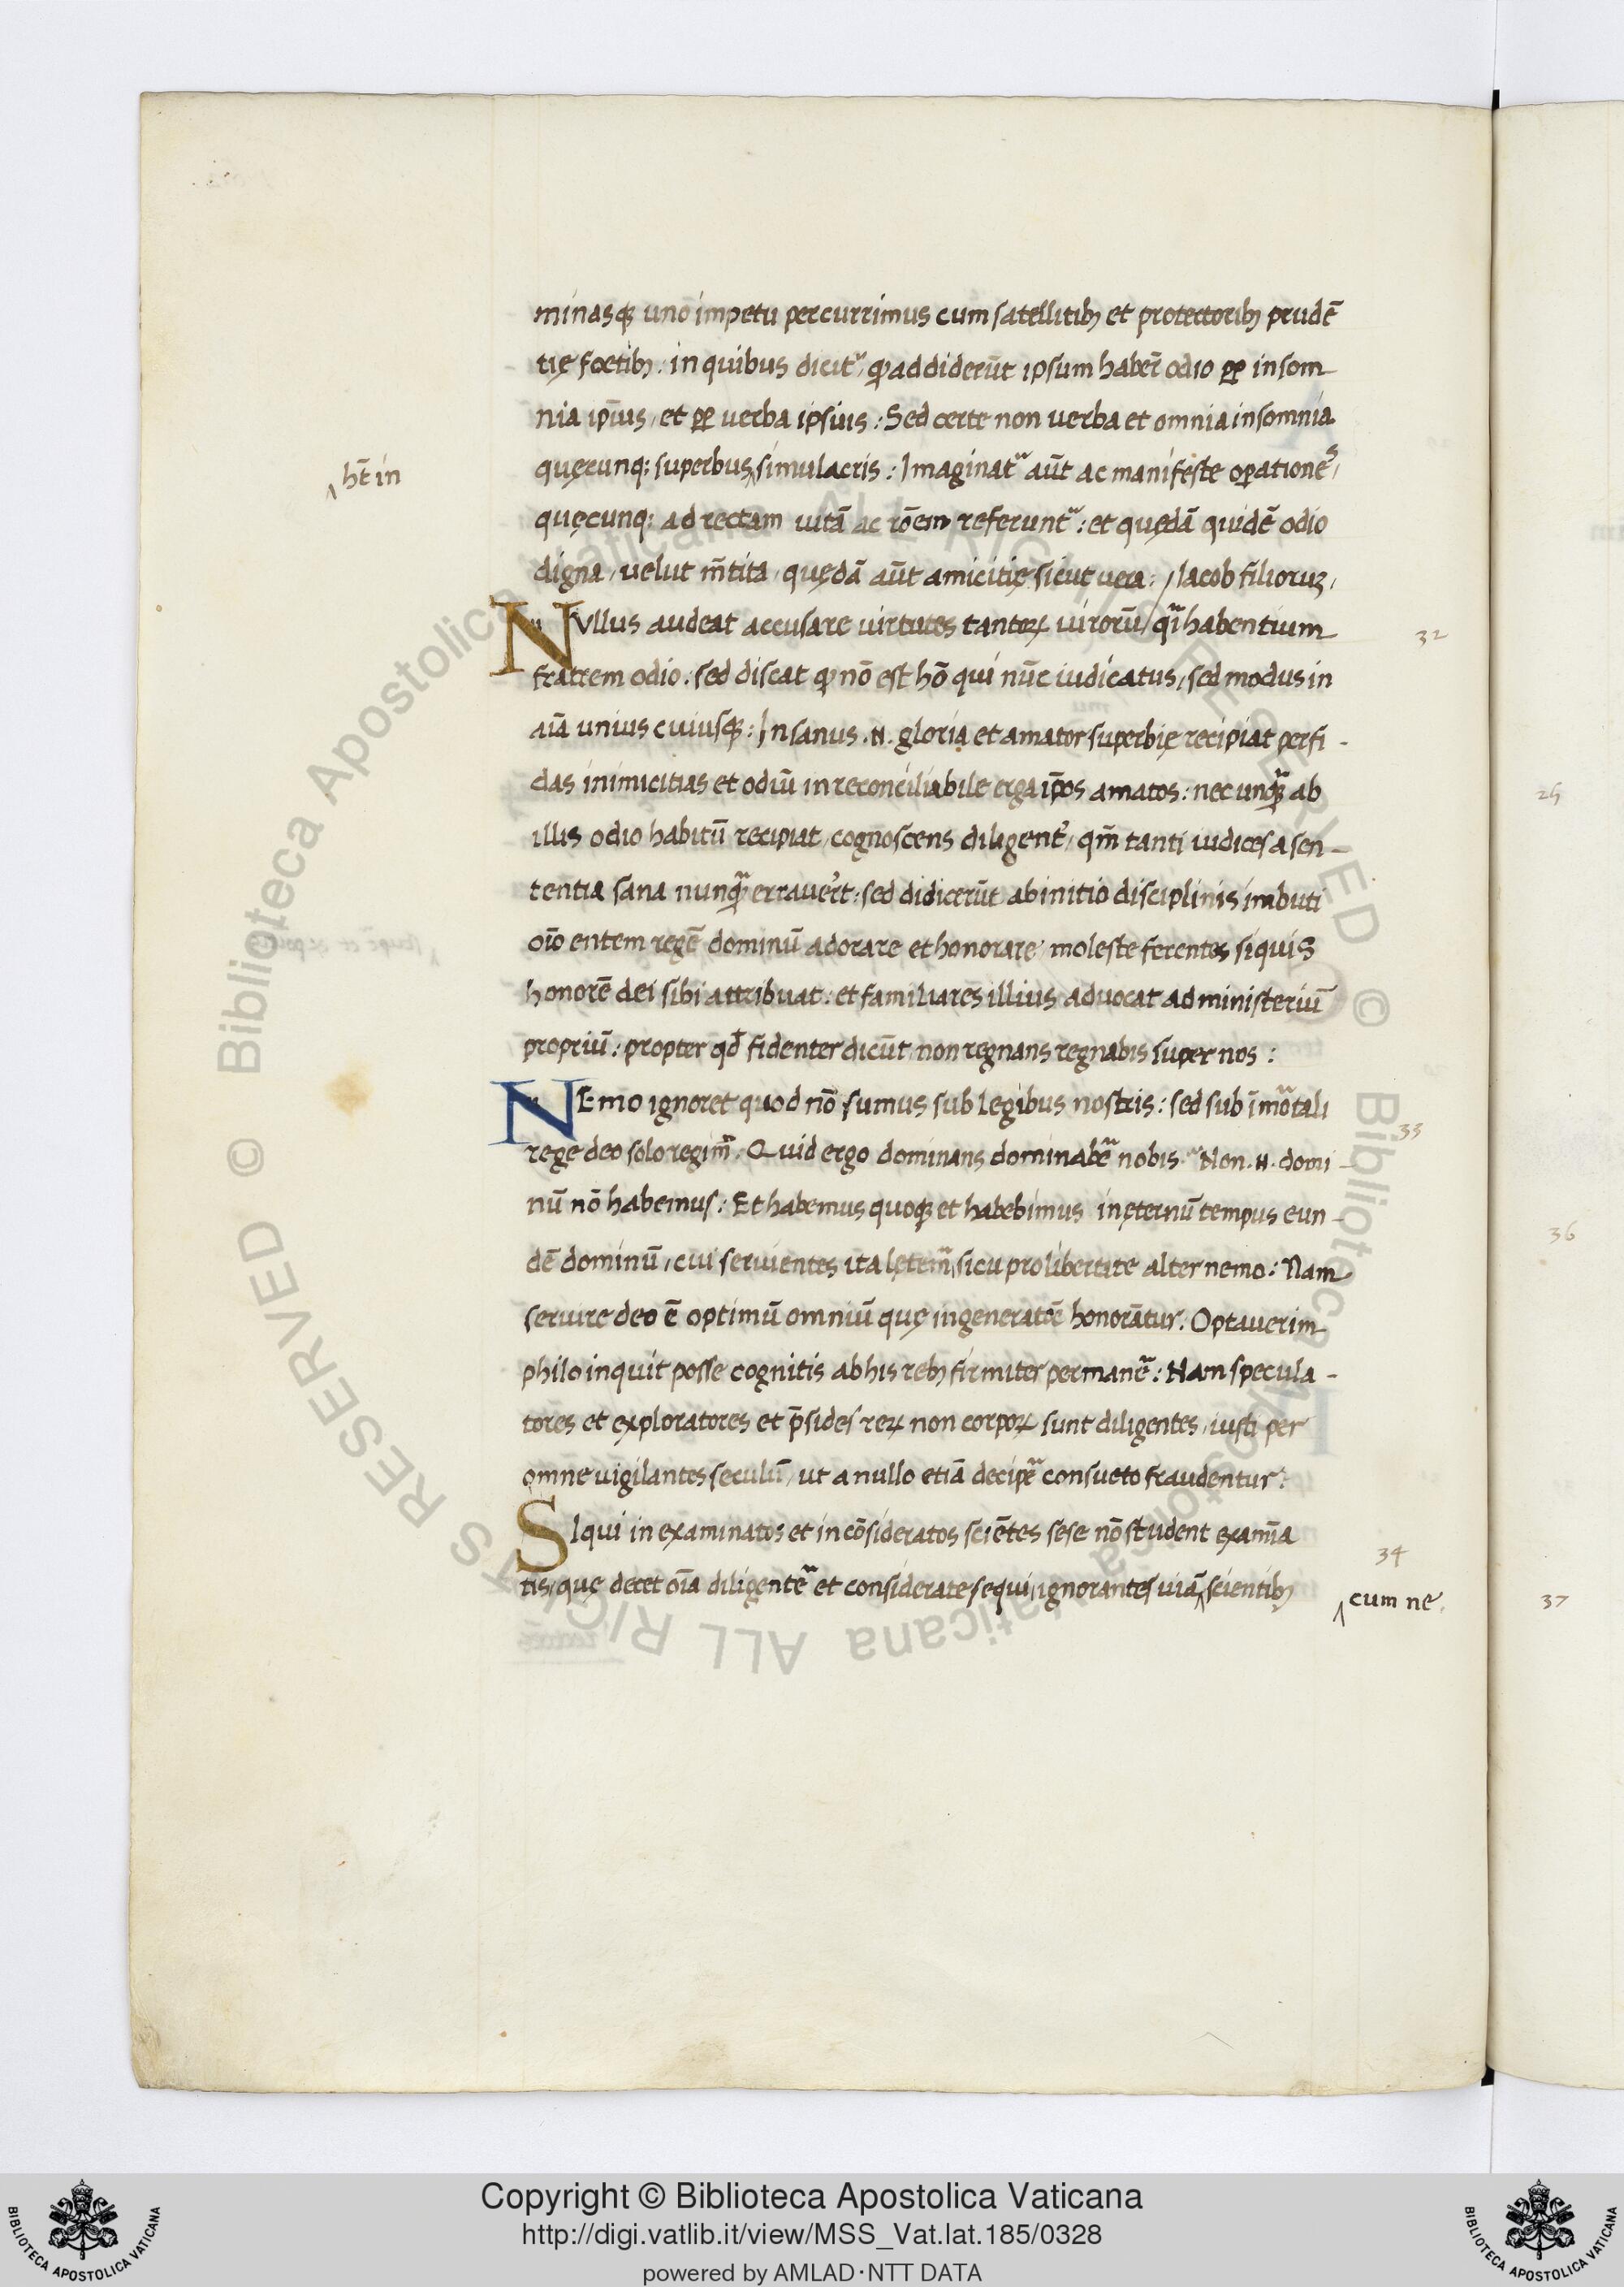 minasqꝫ uno impetu percurrimus cum satellitibꝫ et protectoribꝫ prudē
tię foetibꝫ: in quibus dicitʳ, ꝙ addiderūt ipsum haber̄ odio ꝓpꝑ insom
nia ip̄ius, et ꝓpꝑ verba ipsius: Sed certe non verba et omnia insomnia
quęcunqꝫ superbus ‸ simulacris: Imaginatʳ aūt ac manifeste oꝑationes,
quęcunqꝫ ad rectam uitā ac rōem referuntʳ: et quędā quidē odio
digna, velut m̄tita, quędā aūt amicitię sicut vera: / Iacob filioruꝫ,
NVllus audeat accusare virtutes tantoꝝ uirorū / qͣi habentium
fratrem odio: sed discat ꝙ nō est hō qui nūc iudicatus, sed modus in
aīa unius cuiusqꝫ: Insanus .n. gloria et amator superbię recipiat perfi-
das inimicitias et odiū inreconciliabile erga ip̄os amatos: nec unqͣꝫ ab
illis odio habitū recipiat, cognoscens diligent̄, qm̄ tanti iudices a sen-
tentia sana nunqͣꝫ erraver̄t: sed didicerūt ab initio disciplinis imbuti
oīo entem regē dominū adorare et honorare, moleste ferentes siquis
honorē dei sibi attribuat: et familiares illius advocat ad ministeriū
propriū: propter qd̄ fidenter dicūt, non regnans regnabis super nos:
NEmo ignoret quod nō sumus sub legibus nostris: sed sub īmortali
rege deo solo regimʳ. Quid ergo dominans dominabēʳ nobis: Non .n. domi-
nū nō habemus: Et habemus quoqꝫ et habebimus in ęternū tempus eun-
dē dominū, cui servientes ita lętemʳ, sicu pro libertate alter nemo: Nam
servire deo ē optimū omniū quę in generatōe honorātur. Optaverim
philo inquit posse cognitis ab his rebꝫ firmiter permanēʳ: Nam specula-
tores et exploratores et p̄sides reꝝ non corpoꝝ sunt diligentes, iusti per
omne vigilantes seculū, ut a nullo etiā decipēʳ consueto fraudentur:
SI qui in examinatos et incōsideratos sciētes sese nō student examīa
tis, quę decet oīa diligentēʳ et considerate sequi, ignorantes uiā ‸ scientibꝫ
‸ hēt in
‸ cum ne.
32
33
34
25
36
37
© Biblioteca Apostolica Vaticana ALL RIGHTS RESERVED © Biblioteca Apostolica Vaticana ALL RIGHTS RESERVED
BIBLIOTECA APOSTOLICA VATICANA
Copyright © Biblioteca Apostolica Vaticana
http://digi.vatlib.it/view/MSS_Vat.lat.185/0328
powered by AMLAD·NTT DATA
BIBLIOTECA APOSTOLICA VATICANA